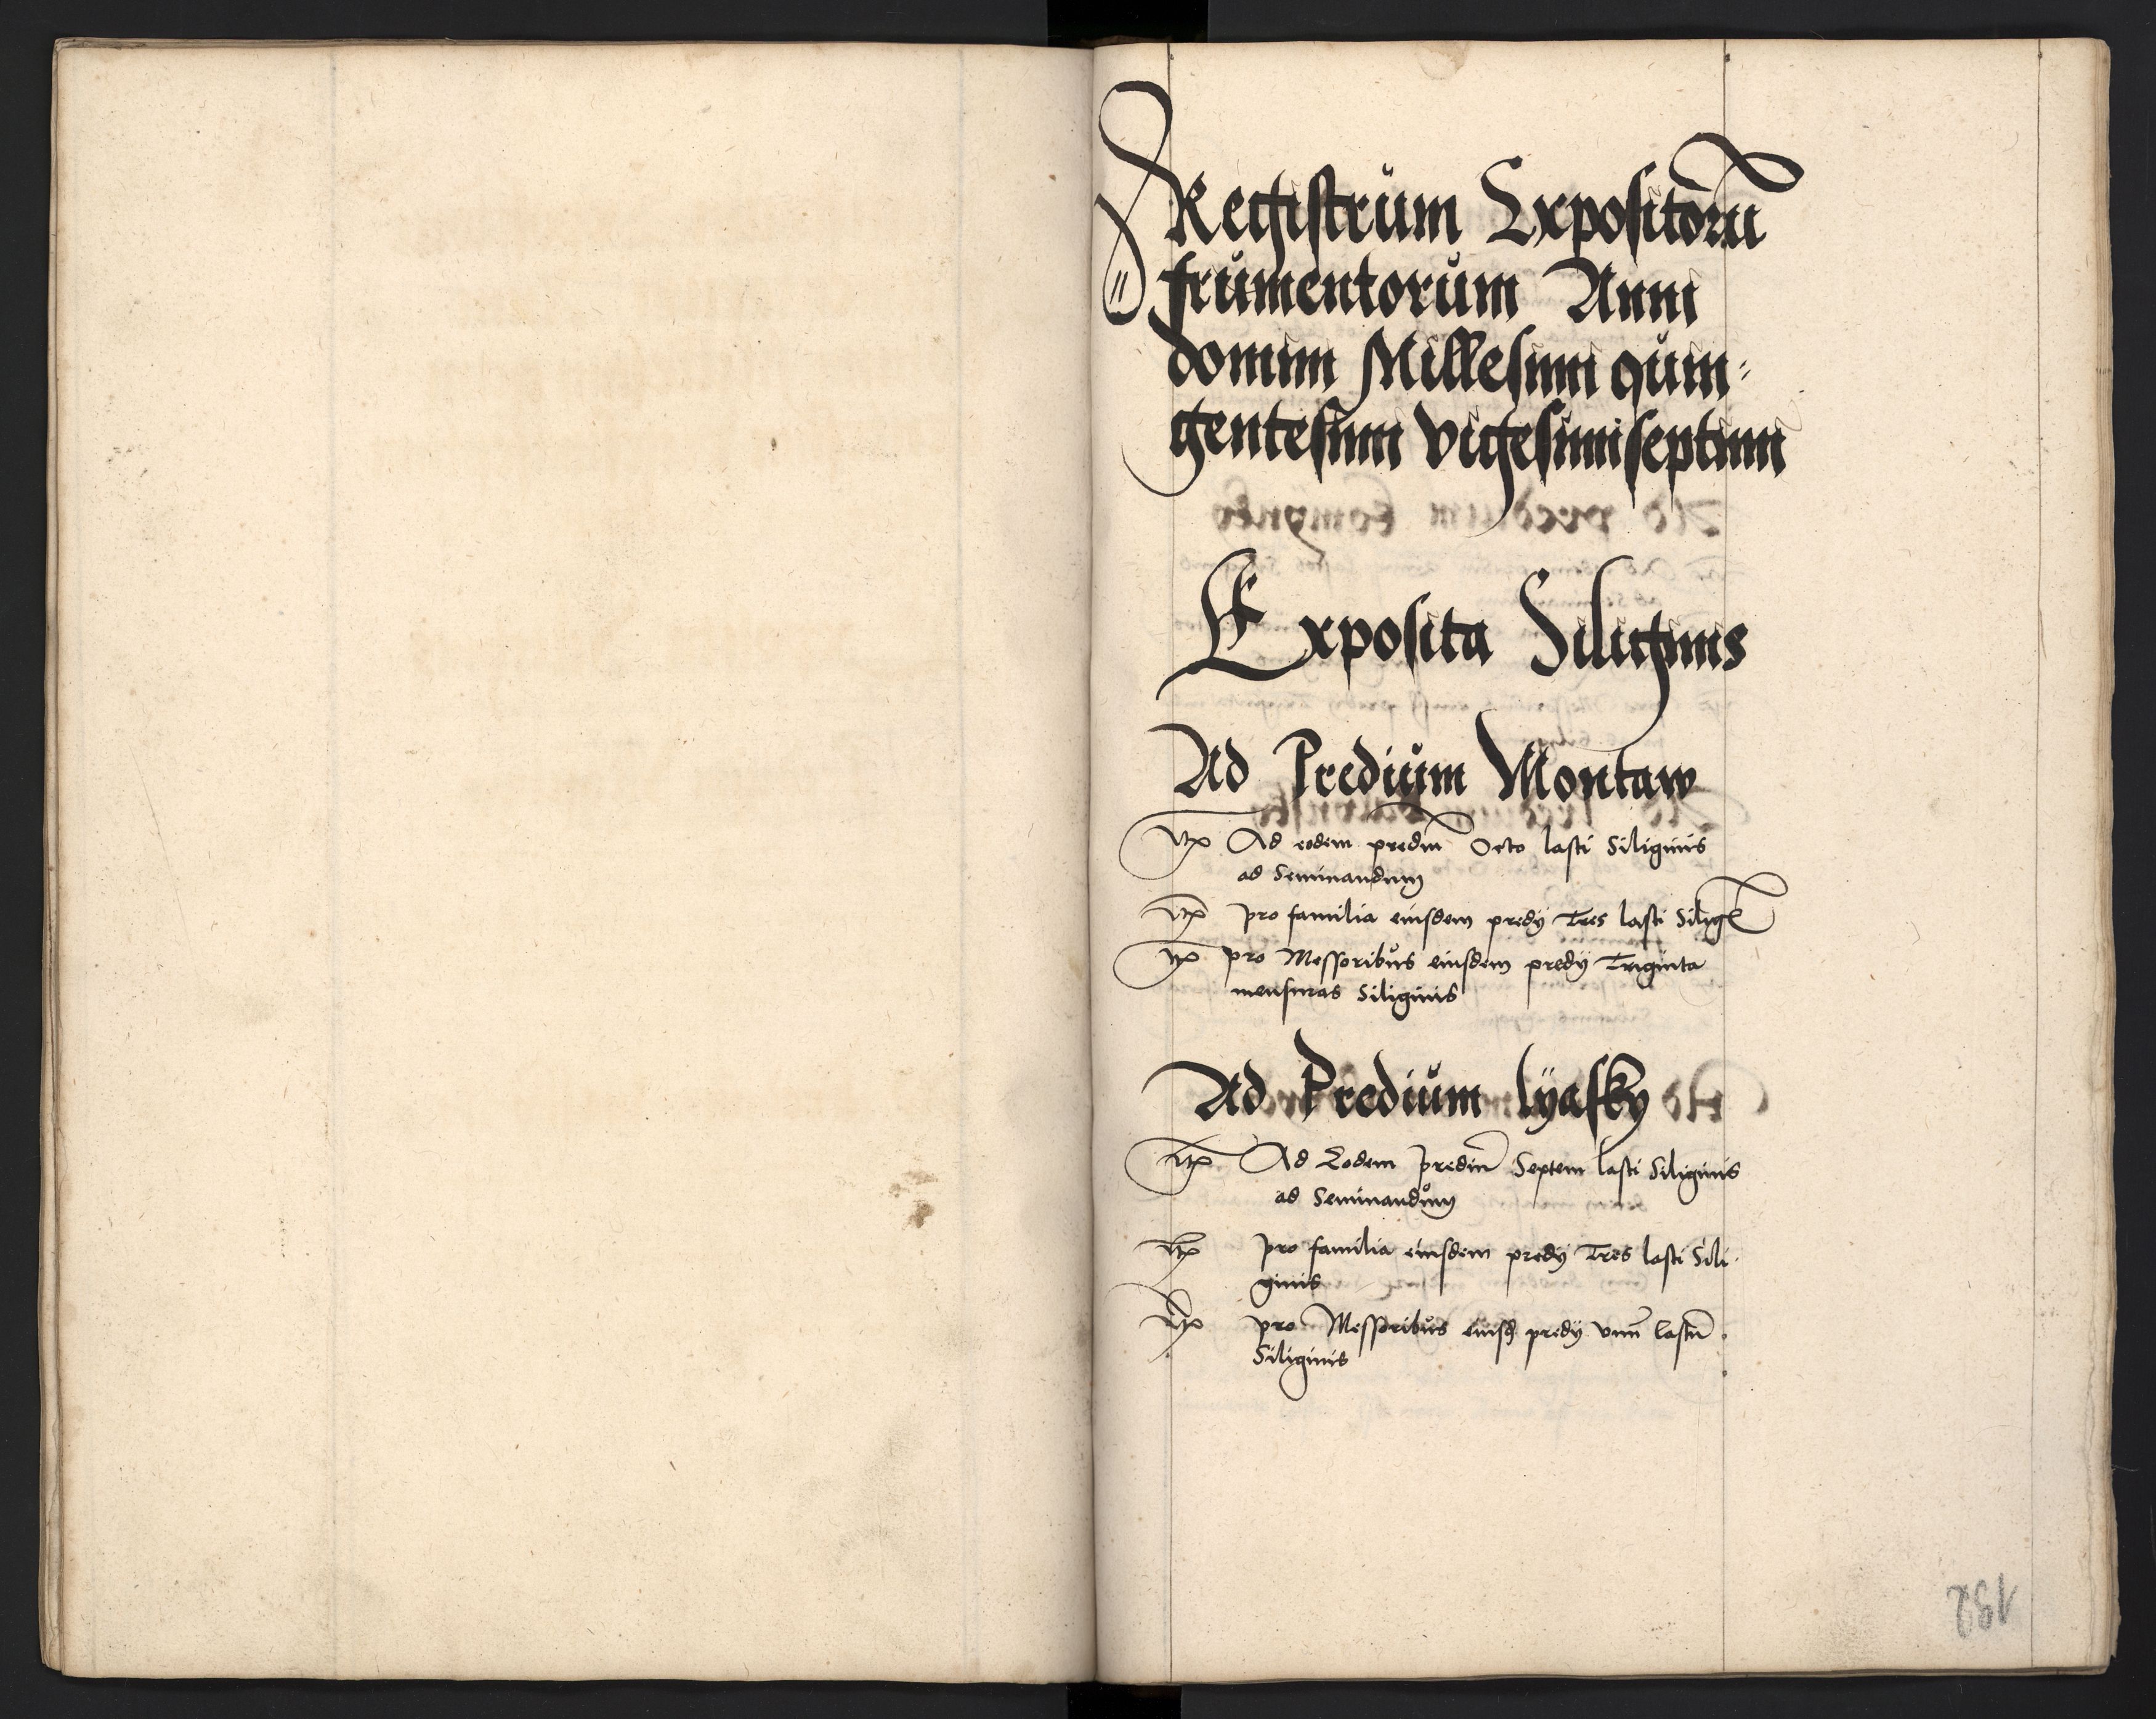 Registrum Expositoru
frumentorum Anni
domini Millesimi quin=
gentesimi vigesimiseptimi
Exposita Siliginis
Ad Predium Montaw
Itm Ad eodem prediu Octo lasti Siliginis
ad Seminandum
Itm pro familia eiusdem predij Tres lasti Silig
Itm pro Messoribus eiusdem predij Triginta
mensuras Siliginis
Ad Predium lyasky
Itm Ad Eodem prediu Septem lasti Siliginis
ad Seminandum
Itm pro familia eiusdem predij Tres lasti Sili-
ginis
Itm pro Messoribus eiusd predij vnu lastu
Siliginis
132